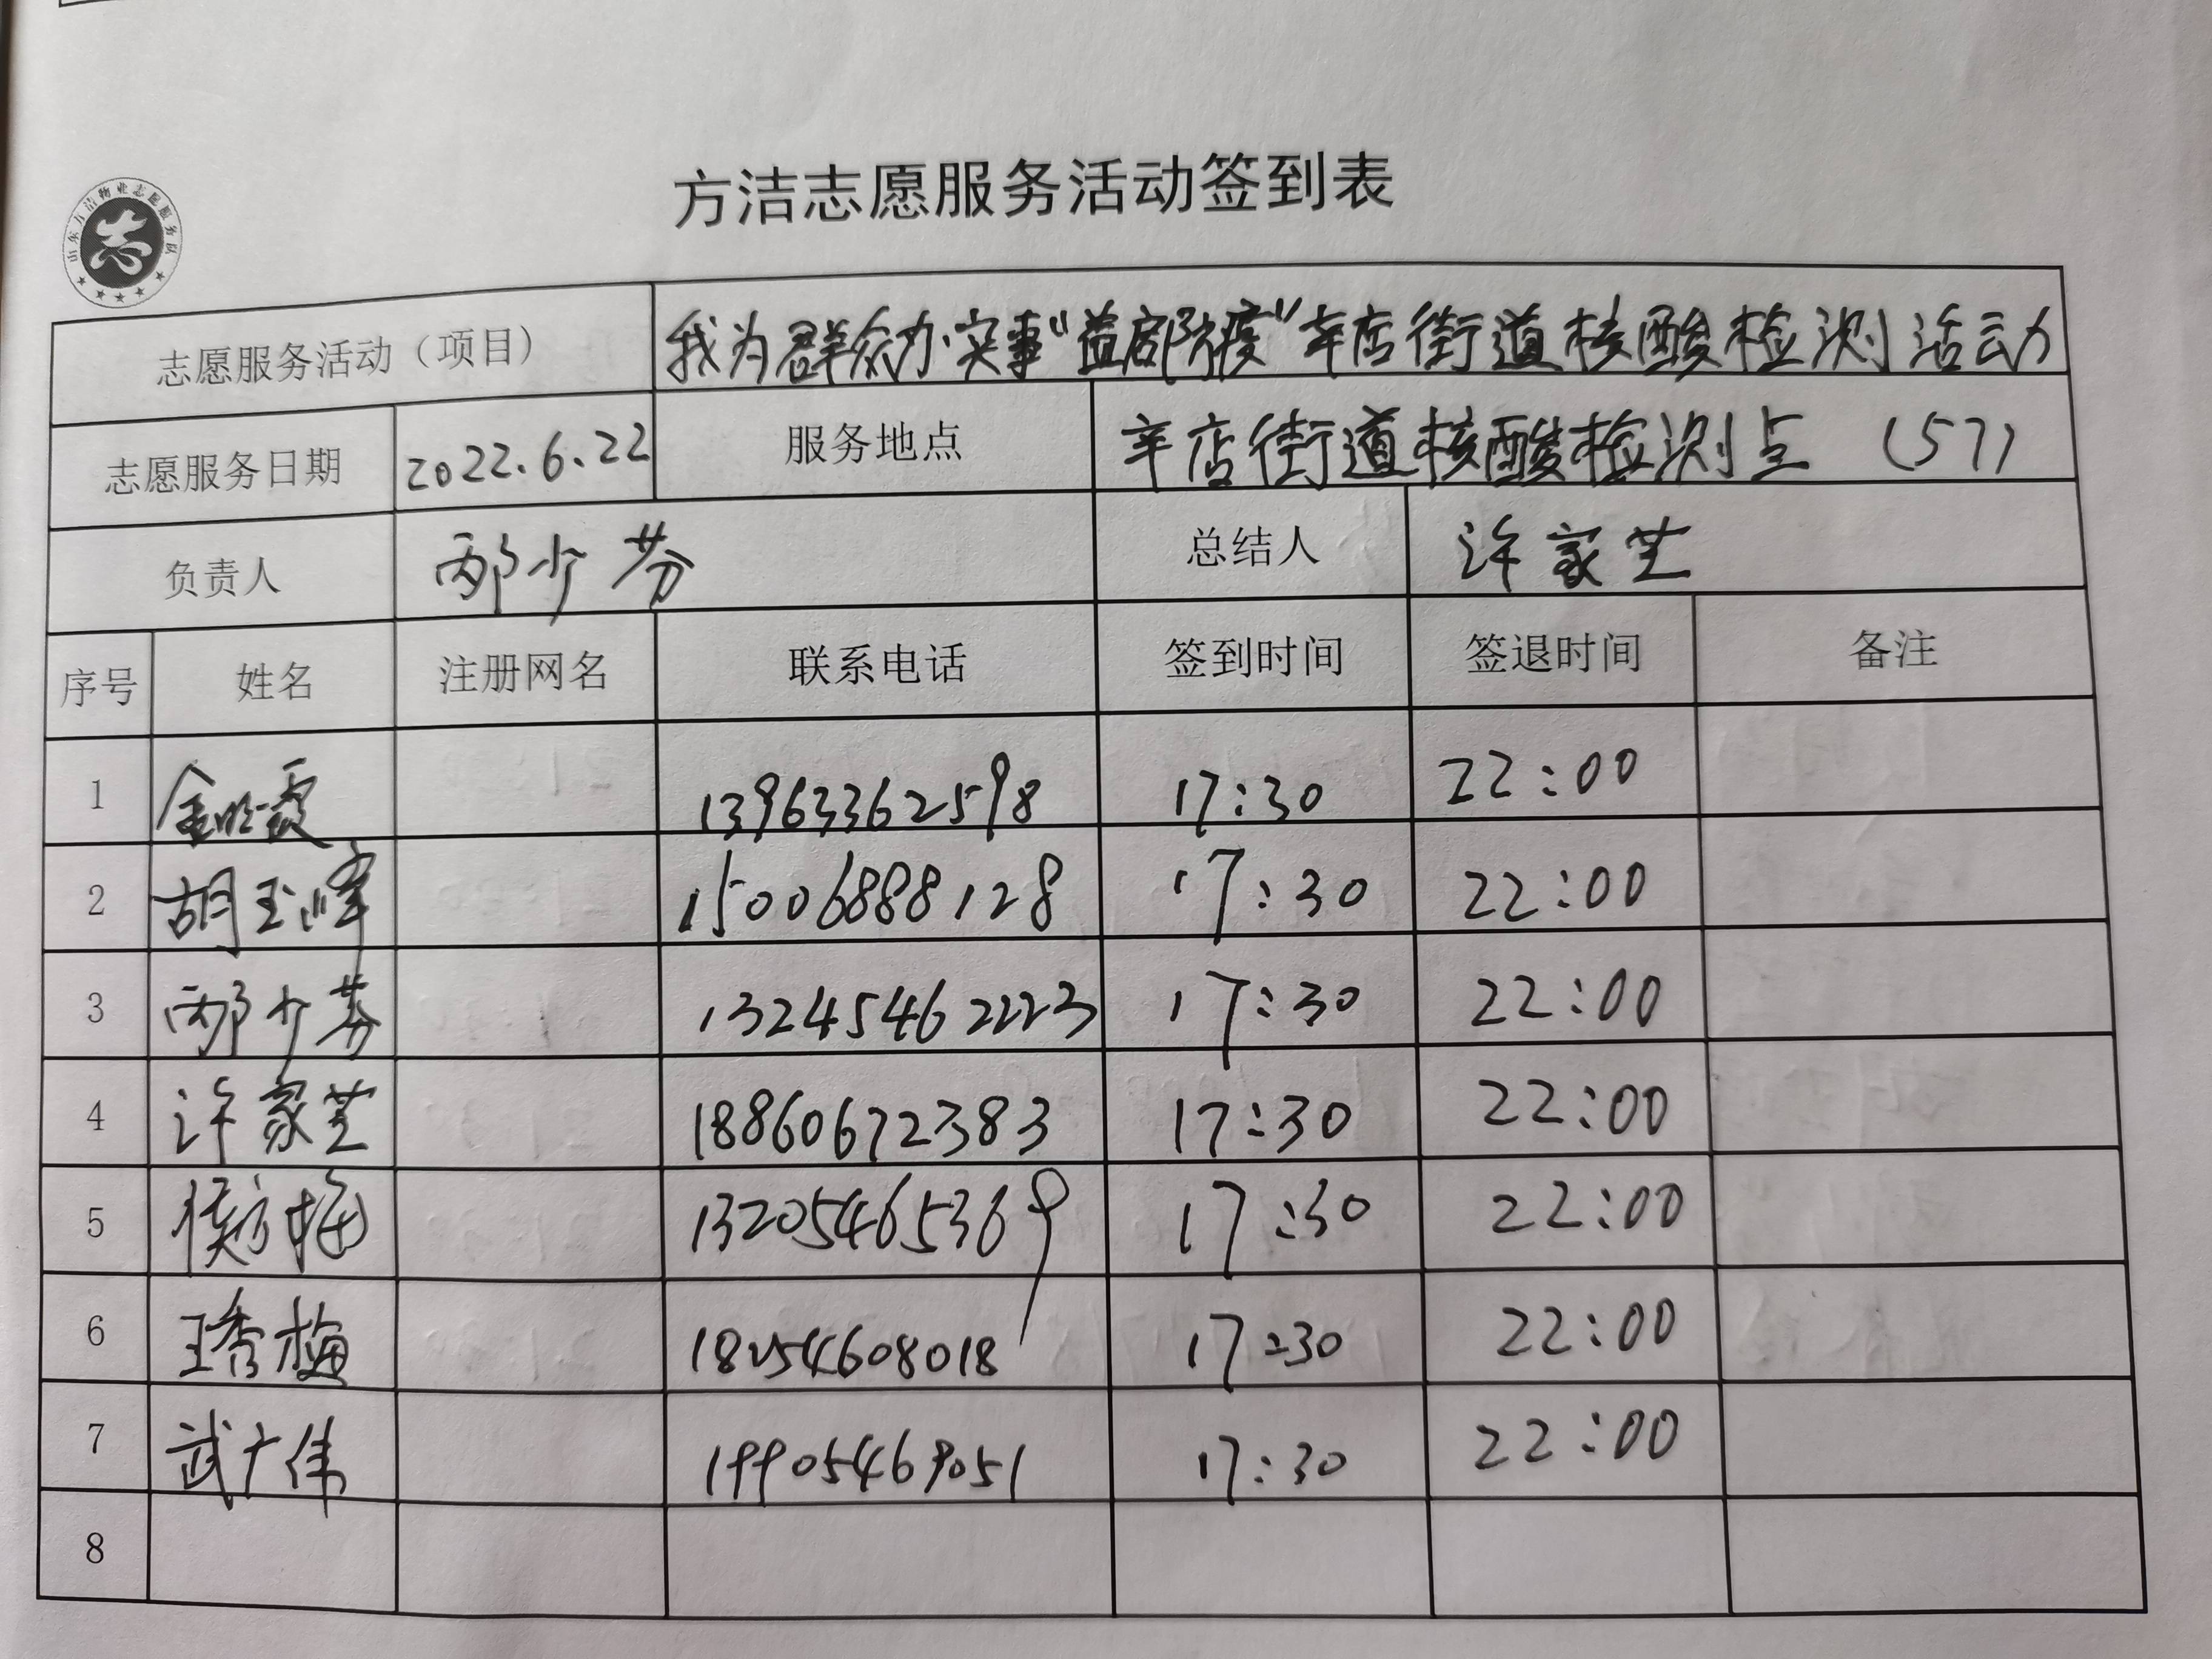 山东方洁物业志愿服务队
方洁志愿服务活动签到表
志愿服务活动（项目） 我为群众办实事“益启防疫”辛店街道核酸检测活动
志愿服务日期 2022.6.22 服务地点 辛店街道核酸检测点 (57)
负责人 邴少芬 总结人 许家芝
序号 姓名 注册网名 联系电话 签到时间 签退时间 备注
1 金晓霞 13963362598 17:30 22:00
2 胡玉峰 15006888128 17:30 22:00
3 邴少芬 13245462223 17:30 22:00
4 许家芝 18860672383 17:30 22:00
5 侯方梅 13205465369 17:30 22:00
6 王秀梅 18254608018 17:30 22:00
7 武广伟 19905469051 17:30 22:00
8